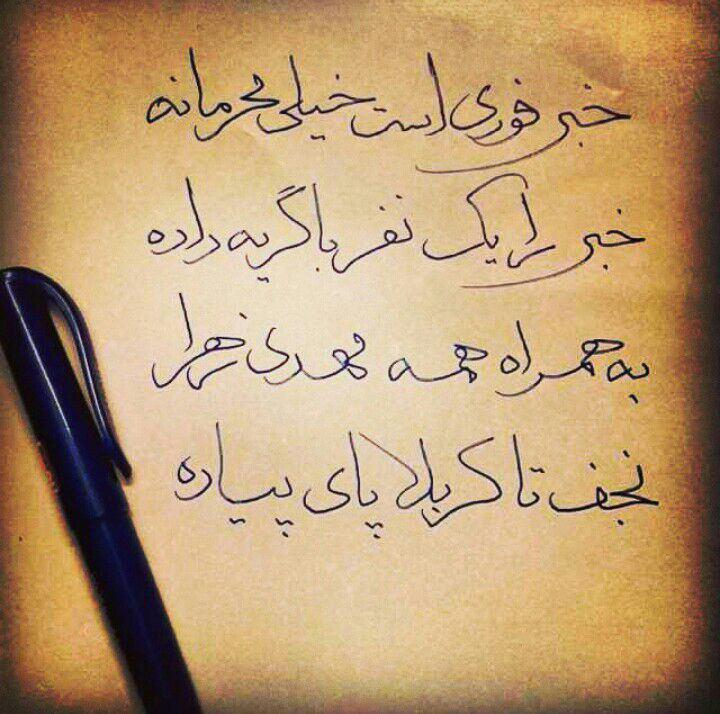 خبر فوری است خیلی محرمانه
خبر را یک نفر با گریه داده
به همراه همه مهدی زهرا
نجف تا کربلا پای پیاده